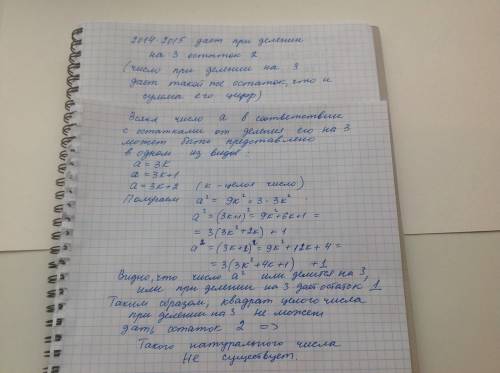 2014·2015 дает при делении
на 3 остаток 2
(число при делении на 3
дает такой же остаток, что и
сумма его цифр)
Всякое число a в соответствии
с остатками от деления его на 3
может быть представлено
в одном из видов:
a = 3k
a = 3k+1
a = 3k+2 (k - целое число)
Получаем a² = 9k² = 3·3k²
a² = (3k+1)² = 9k²+6k+1 =
= 3(3k²+2k) + 1
a² = (3k+2)² = 9k²+12k+4 =
= 3(3k²+4k+1) +1
Видно, что число a² или делится на 3,
или при делении на 3 даёт остаток 1
Таким образом, квадрат целого числа
при делении на 3 не может
дать остаток 2 =>
Такого натурального числа
не существует.